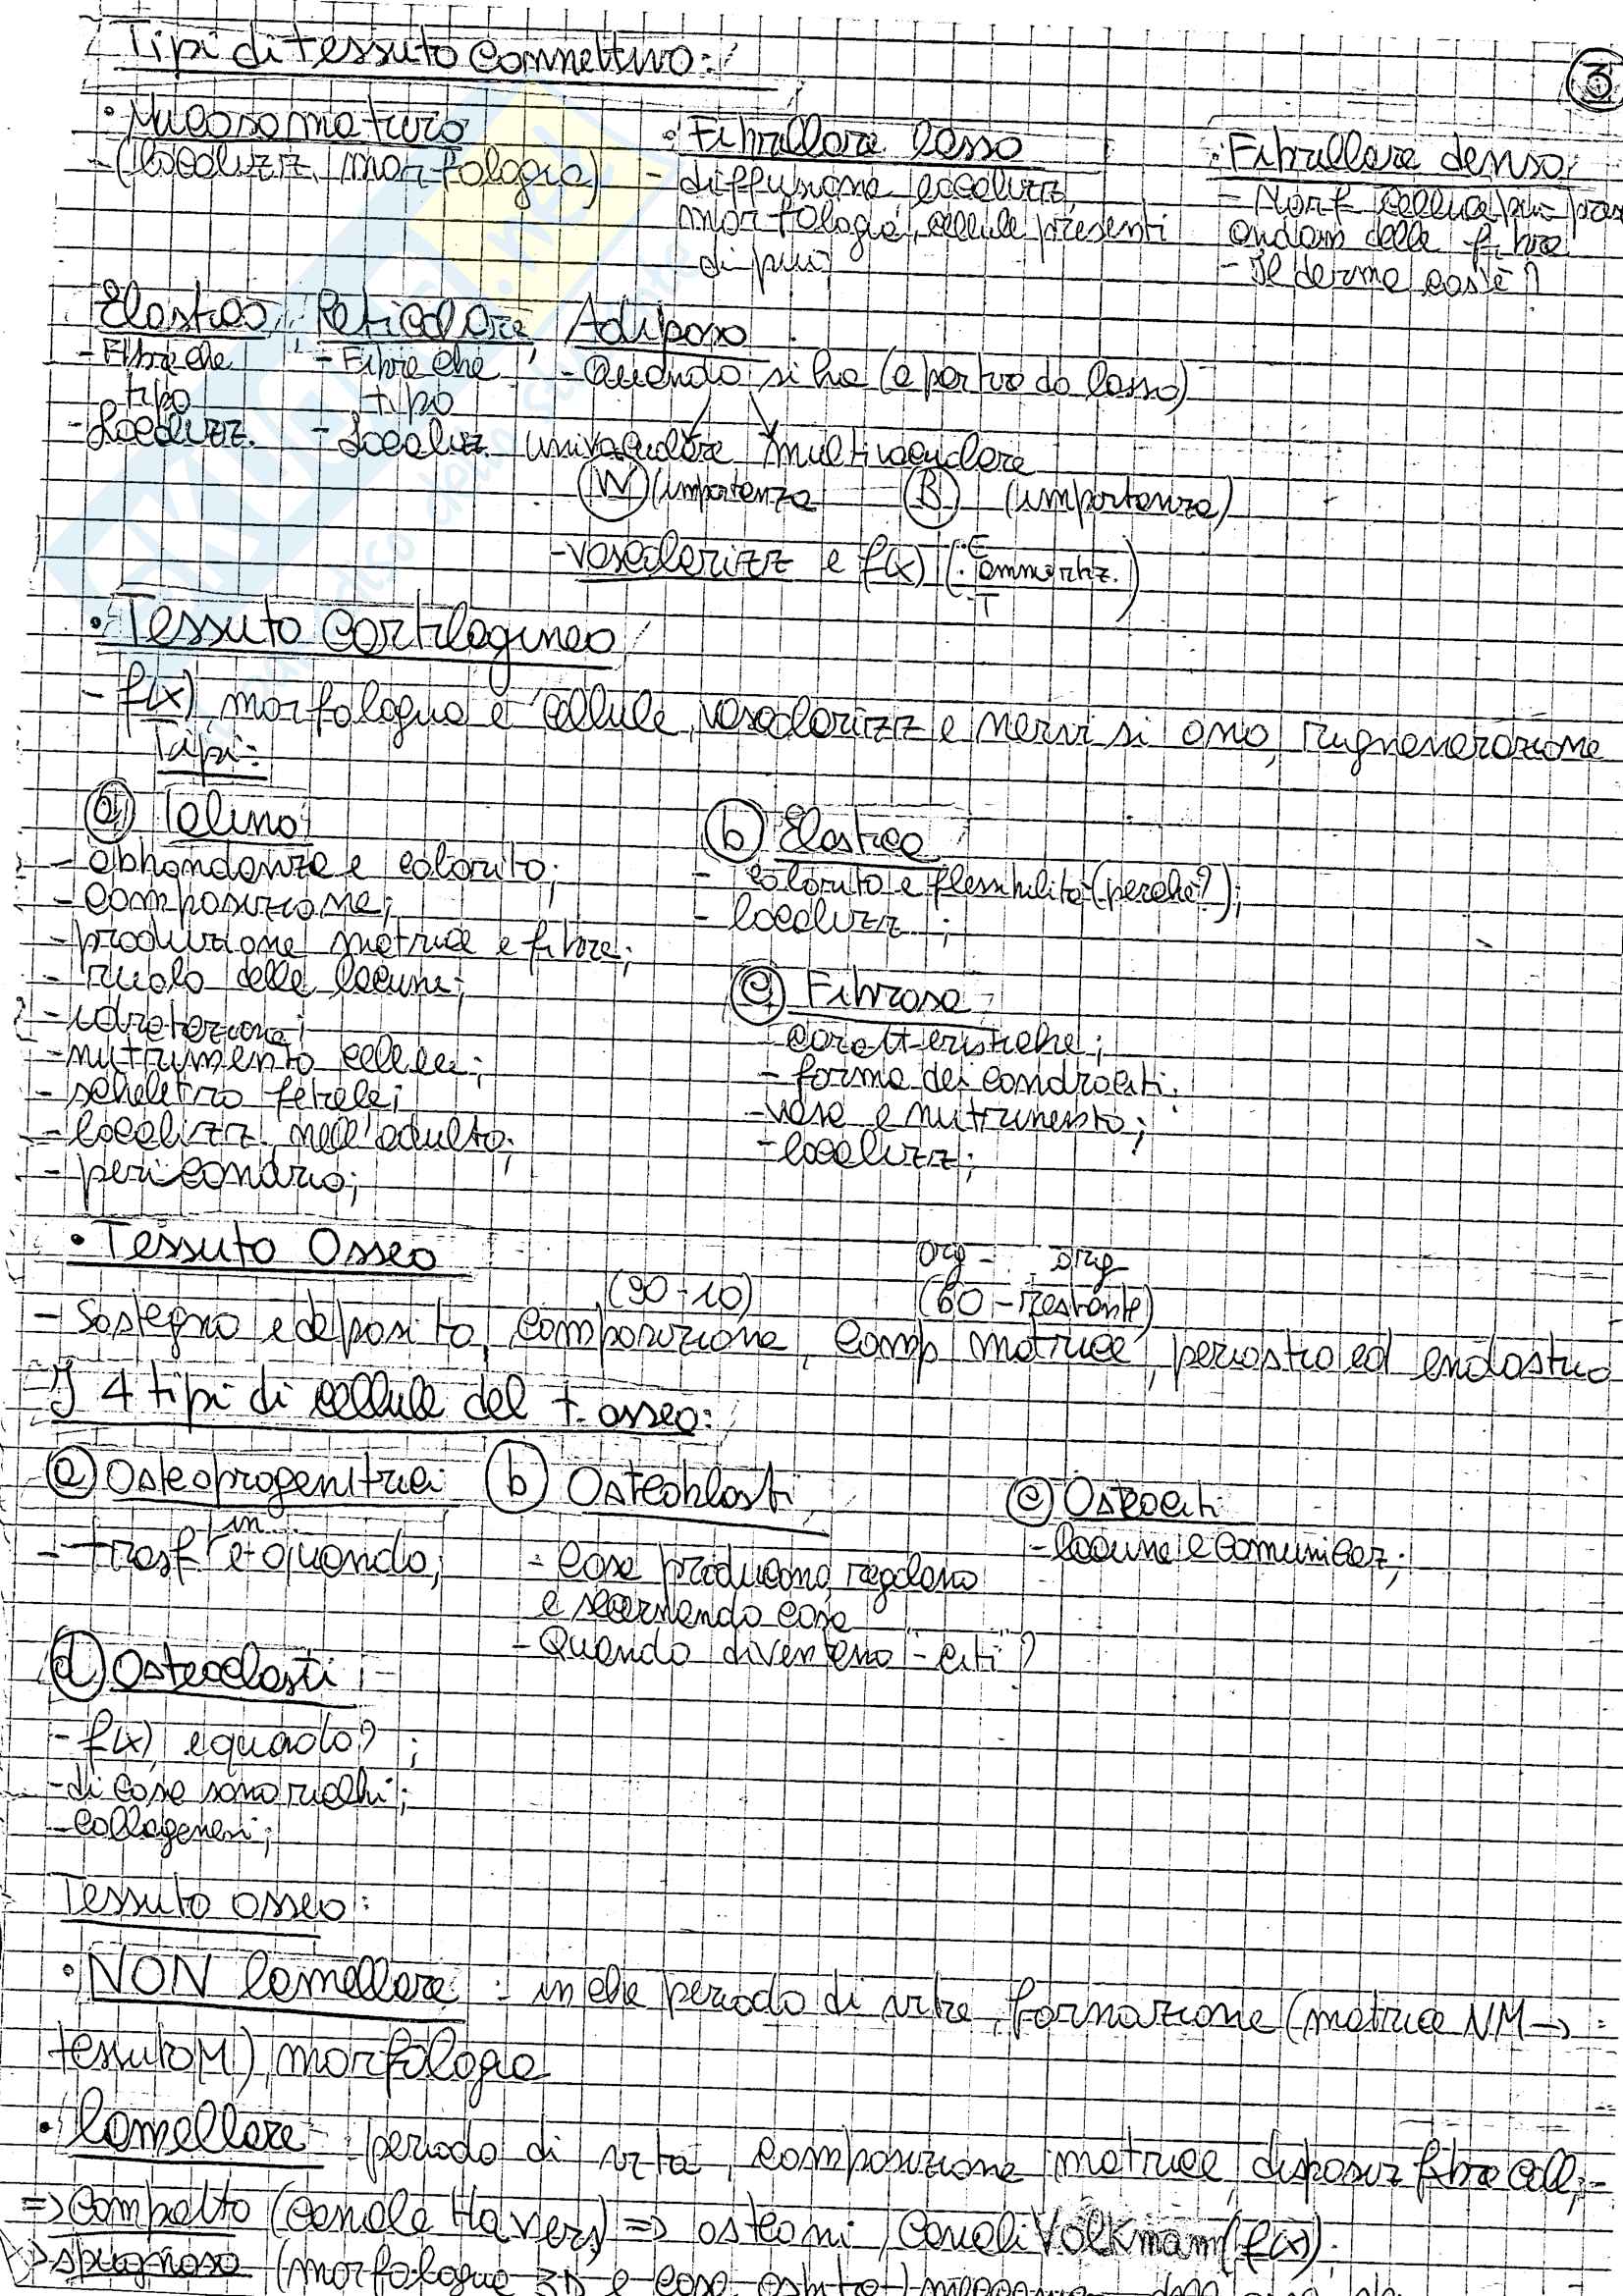 Tipi di tessuto connettivo:
3
• Mucoso maturo
- (localizz, morfologia)
• Fibrillare lasso
- diffusione localizz,
morfologia, cellule presenti
di più
• Fibrillare denso
- Morf cellula più pres
andam delle fibre
- Il derma cos'è?
Elastico,
- Fibre che
tipo
- Localizz.
Reticolare,
- Fibre che
tipo
- Localiz.
Adiposo
- Quando si ha (a partire da lasso)
univacuolare multivacuolare
W (importanza B (importanza)
- vascolarizz e f(x) (. E
. ammortiz.
- T )
• Tessuto cartilagineo
- f(x), morfologia e cellule, vascolarizz e nervi si ono, rugnenerazione
Tipi:
a) Ialina
- abbondanza e colorito;
- composizione;
- produzione matrice e fibre;
- ruolo delle lacune;
- idratazione;
- nutrimento cellule;
- scheletro fetale;
- localizz. nell'adulto;
- pericondrio;
b) Elastica
- colorito e flessibilità (perché?);
- localizz ;
c) Fibrosa
- caratteristiche;
- forma dei condrociti;
- vasi e nutrimento;
- localizz;
• Tessuto Osseo
(90-10) (60-restante)
- Sostegno e deposito, composizione, comp matrice, periostio ed endostio
I 4 tipi di cellule del t. osseo:
a) Osteoprogenitrici
- trasf in... e quando;
b) Osteoblasti
- cosa producono, regolano
e secernendo cosa
- Quando diventano -citi?
c) Osteociti
- lacune e comunicaz;
d) Osteoclasti:
- f(x) e quando? ;
- di cosa sono ricchi;
- collagenasi;
Tessuto osseo:
• NON lamellare: in che periodo di vita, formazione (matrice NM →
tessuto M), morfologia
• Lamellare periodo di vita, composizione matrice, disposiz fibre coll;
=> compatto (canale Havers) => osteoni, Canali Volkmann (f(x)).
=> spugnoso (morfologia 3D e cosa